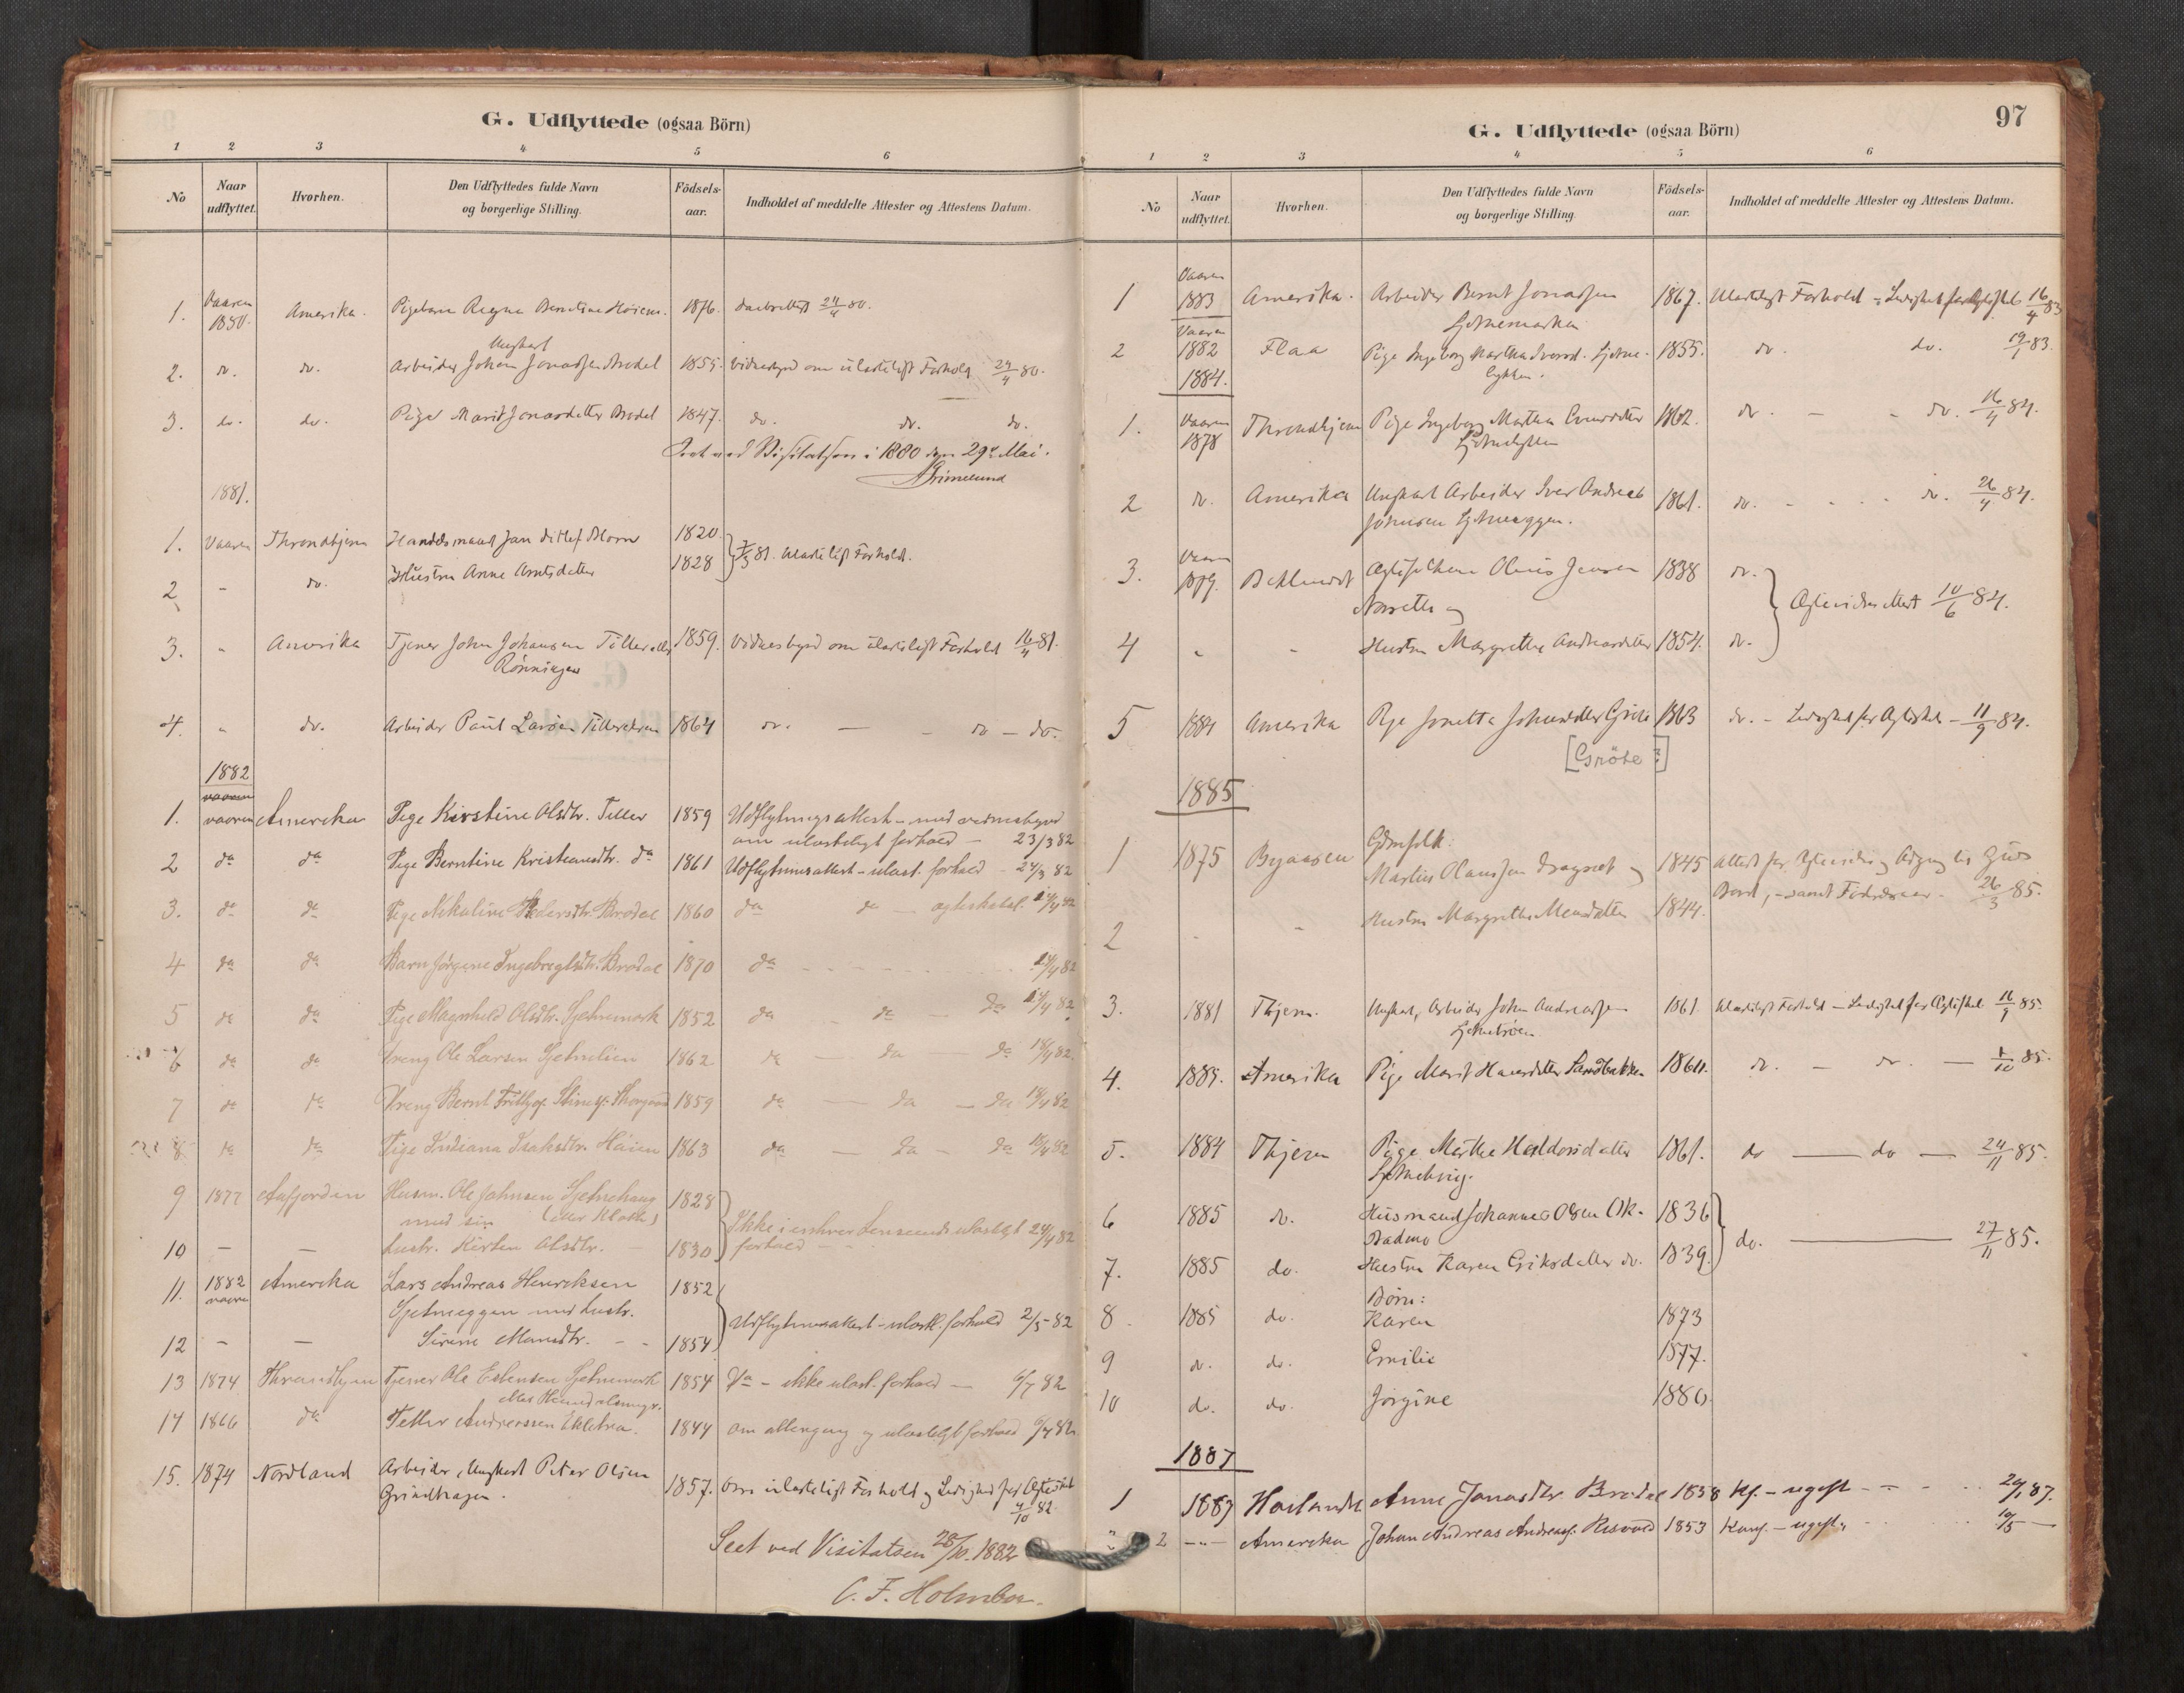 G. Udflyttede (ogsaa Börn)
1 2 3 4 5 6
No Naar udflyttet. Hvorhen. Den Udflyttedes fulde Navn og borgerlige Stilling. Födsels-aar. Indholdet af meddelte Attester og Attestens Datum.
1. Vaaren 1880. Amerika. Pigebarn 1876. 24/4 80.
Ungkarl
2. do. do. Arbeider Johan Jonassen Brodal 1855. Vidnesbyrd om ulasteligt Forhold 24/4 80.
3. do. do. Pige Marit Jonasdatter Brodal 1847. do. do. do.
Seet ved Visitatsen i 1880 den 29de Mai.
Grimelund
1881.
1. Vaaren Throndhjem Handelsmand Jan Ditlef Blom 1820.
2 - do. Hustru Anne Arntsdatter 1828 } 7/3 81. Ulasteligt Forhold.
3. " Amerika Tjener John Johansen Tiller eller 1859. Vidnesbyrd om ulasteligt Forhold 16/4 81.
Rønningen
4. " do. Arbeider Paul Larsen 1864 do. — - do — do.
1882
vaaren
1. vaaren Amerika Pige Kirstine Olsdtr. Tiller 1859 Udflytningsattest - med vidnesbyrd
om ulasteligt forhold — 23/3 82
2 do do Pige Berntine Kristiansdtr. do 1861 Udflytningsattest - ulast. forhold - 24/3 82
3. do do Pige Nikoline Pedersdtr. Brodal 1860 do do — 82
4 do do Barn Jørgine Ingebrigtsdtr. Brodal 1870 do 82
5 do do Pige Magnhild Olsdtr. Sjetnemark 1852 do - do — do 82
6 do do Dreng Ole Larsen Sjetnelien 1862 do — do — do 18/4 82.
7 do do Dreng Bernt 1859 do — do — do 18/4 82
8 do do Pige Indiana Isaksdtr. Høien 1863 do — do — do 82
9 1877 Aafjorden Husm. Ole Johnsen Sjetnehaug 1828
med sin (eller Kloth)
10 — — hustr. Kirsten Olsdtr. — 1830 } Ikke i enhver Henseende ulasteligt 24/4 82
forhold —
11. 1882 vaaren Amerika Lars Andreas Henriksen 1852
Sjetneeggen med hustr.
12 — — Sirene Monsdtr. - - 1854 } Udflytningsattest - ulastl. forhold 2/5 82
13 1874 Throndhjem Tjener Ole Estensen Sjetnemark 1854 Do - ikke ulast. forhold — 6/7 82
14 1866 do Petter Andreassen Ekletrøa. 1844 om altergang og ulasteligt forhold 82
15. 1874 Nordland Arbeider, Ungkarl Peter Olsen 1857. Om ulasteligt Forhold og Ledighed for Ægteskab
Grindhagen. 4/10 82
Seet ved Visitatsen 28/10. 1882
C. F. Holmboe.
97
G. Udflyttede (ogsaa Börn)
1 2 3 4 5 6
No Naar udflyttet. Hvorhen. Den Udflyttedes fulde Navn og borgerlige Stilling. Födsels-aar. Indholdet af meddelte Attester og Attestens Datum.
1 Vaaren 1883 Amerika. Arbeider Bernt Jonassen 1867. Ulasteligt Forhold - Ledighed for Ægteskab 16/4 83
Sjetnemarken
2 Vaaren 1882 Flaa Pige Ingeborg Martha Iversd. Sjetne- 1855. do. do. 19/1 83.
lykken.
1884.
1. Vaaren 1878 Throndhjem Pige Ingeborg Martha 1862. do. - - do. 16/4 84.
Sjetnelykken
2 do. Amerika Ungkarl Arbeider Iver Andreas 1861. do. - - - do. 26/4 84.
Johnsen Sjetneeggen.
3. Vaaren 1879. Ægtefolkene Olaus Jensen 1838 do.
og
4 " " Hustru Margrethe Andreasdatter 1854. do. } 10/6 84.
5 1884 Amerika Pige Jonetta 1863 do. - Ledighed for Ægteskab - 11/9 84.
[Gröte ?]
1885
Gdmfolk:
1 1875 Byaasen Martin Olaussen Dragsaet og 1845 Attest for
Bord, - samt Fødselsaar. 26/3 85.
2 - " Hustru Margrethe Monsdatter 1844.
3. 1881 Thjem. Ungkarl, Arbeider John Andreassen 1861. Ulasteligt Forhold - Ledighed for Ægteskab 85.
Sjetnetrøen
4. 1885. Amerika Pige Marit Hansdatter Sandbakken 1864. do. — do. — 1/10 85.
5. 1884 Thjem Pige Marthe Haldorsdatter 1861. do — do — 24/11 85.
6 1885 do. Husmand Johannes Olsen Ok- 1836
stadmo
7. 1885 do. Hustru Karen Eriksdatter do. 1839. } do. — 27/11 85.
Børn:
8 1885 do. Karen 1873
9 do. do. Emilie 1877.
10 do. do. Jørgine 1880.
1887
1 1887 Anne Jonasdtr. Brodal 1858 Kf. - ugift - - 87.
2 —"— Amerika Johan Andreas Andreass. Risvold 1853 Konf. - ugift. 10/5 —